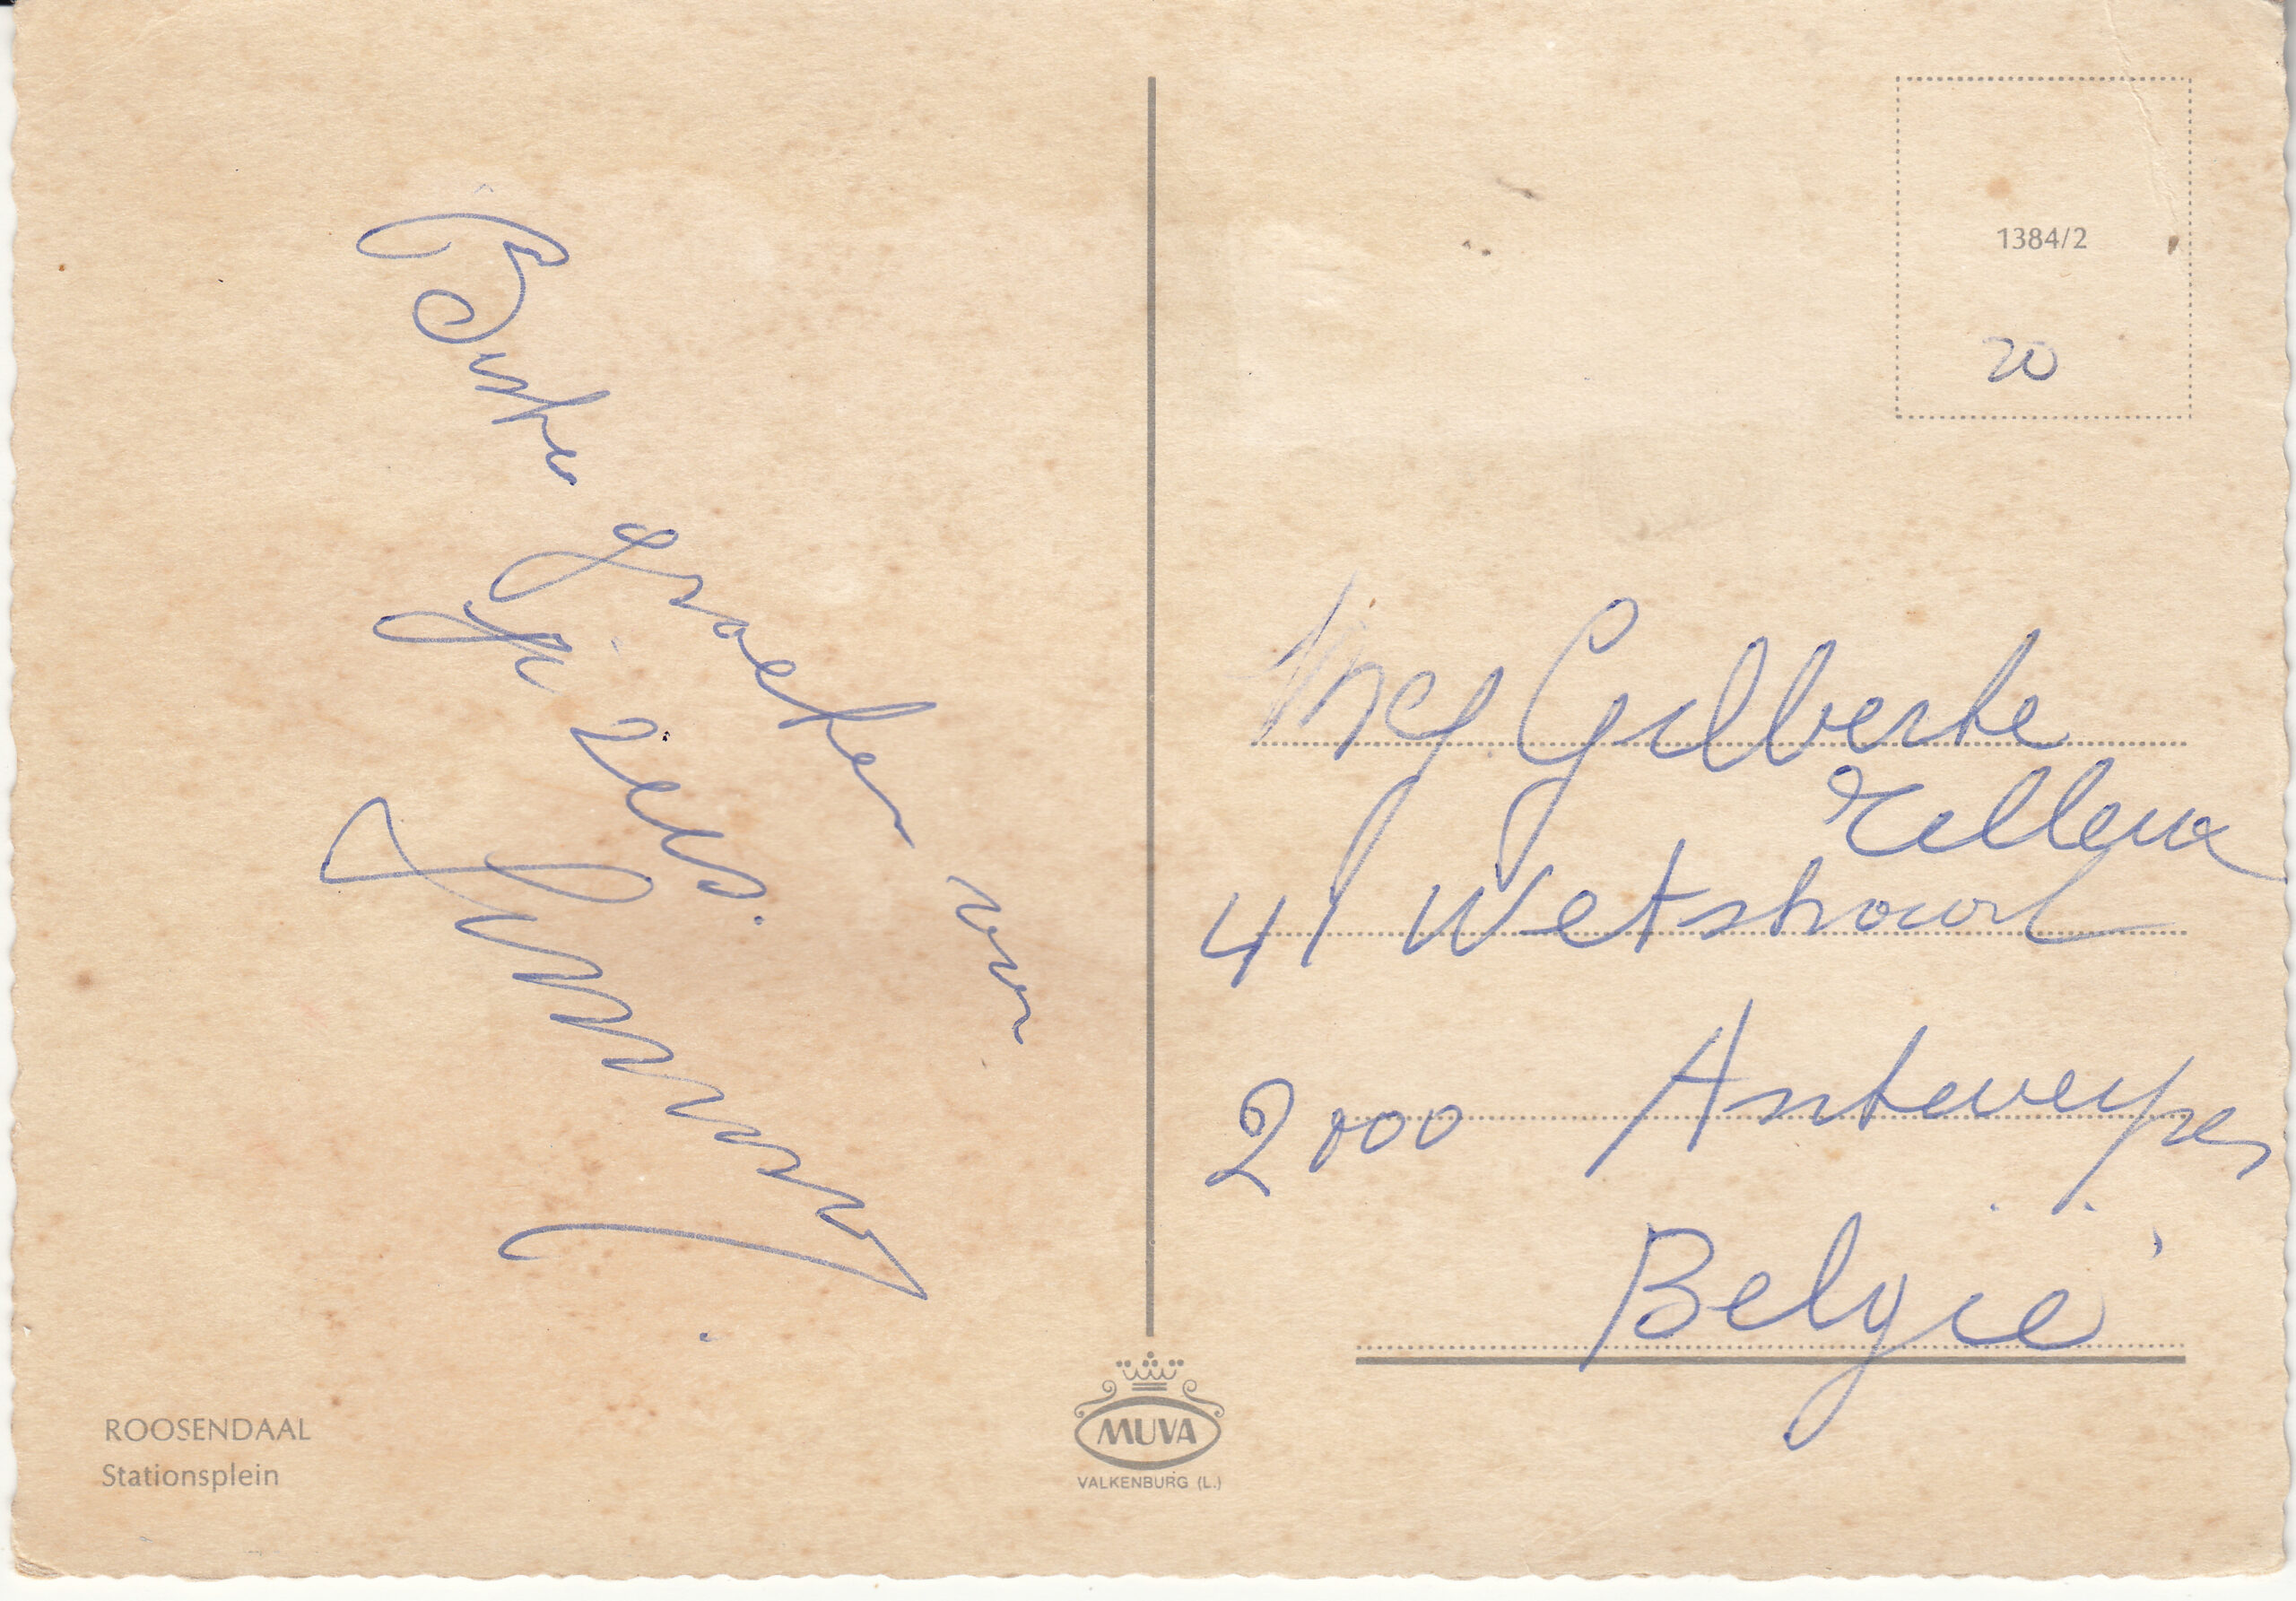 Beste groeten van
1384/2
20
Mej Gilberte
41 Wetstraat
2000 Antwerpen
België
ROOSENDAAL
Stationsplein
MUVA
VALKENBURG (L.)